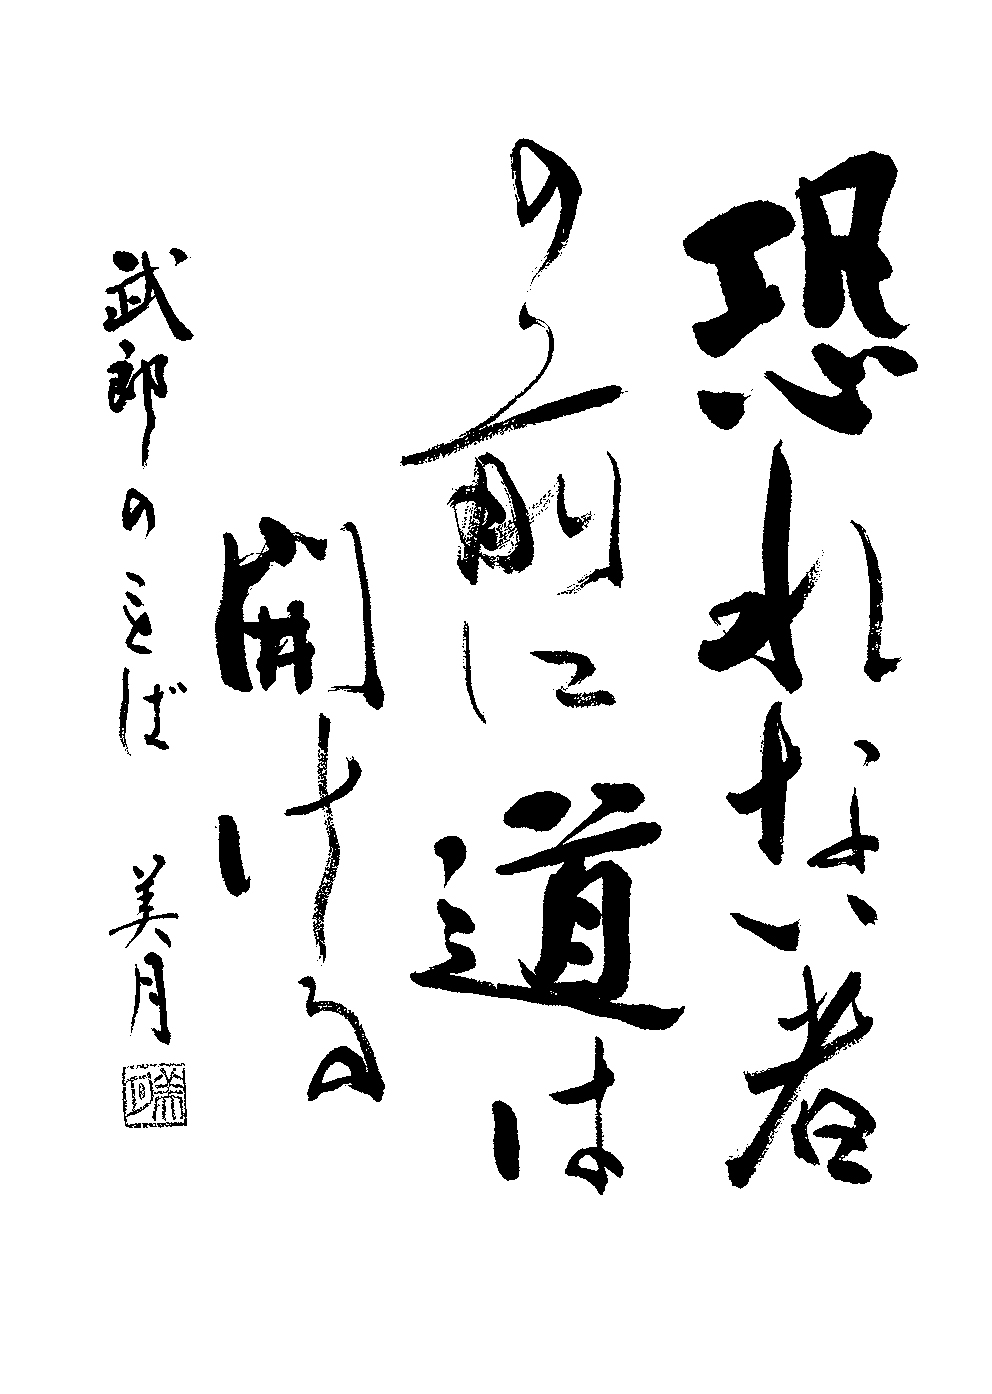 恐れない者
の前に道は
開ける
武郎のことば 美月